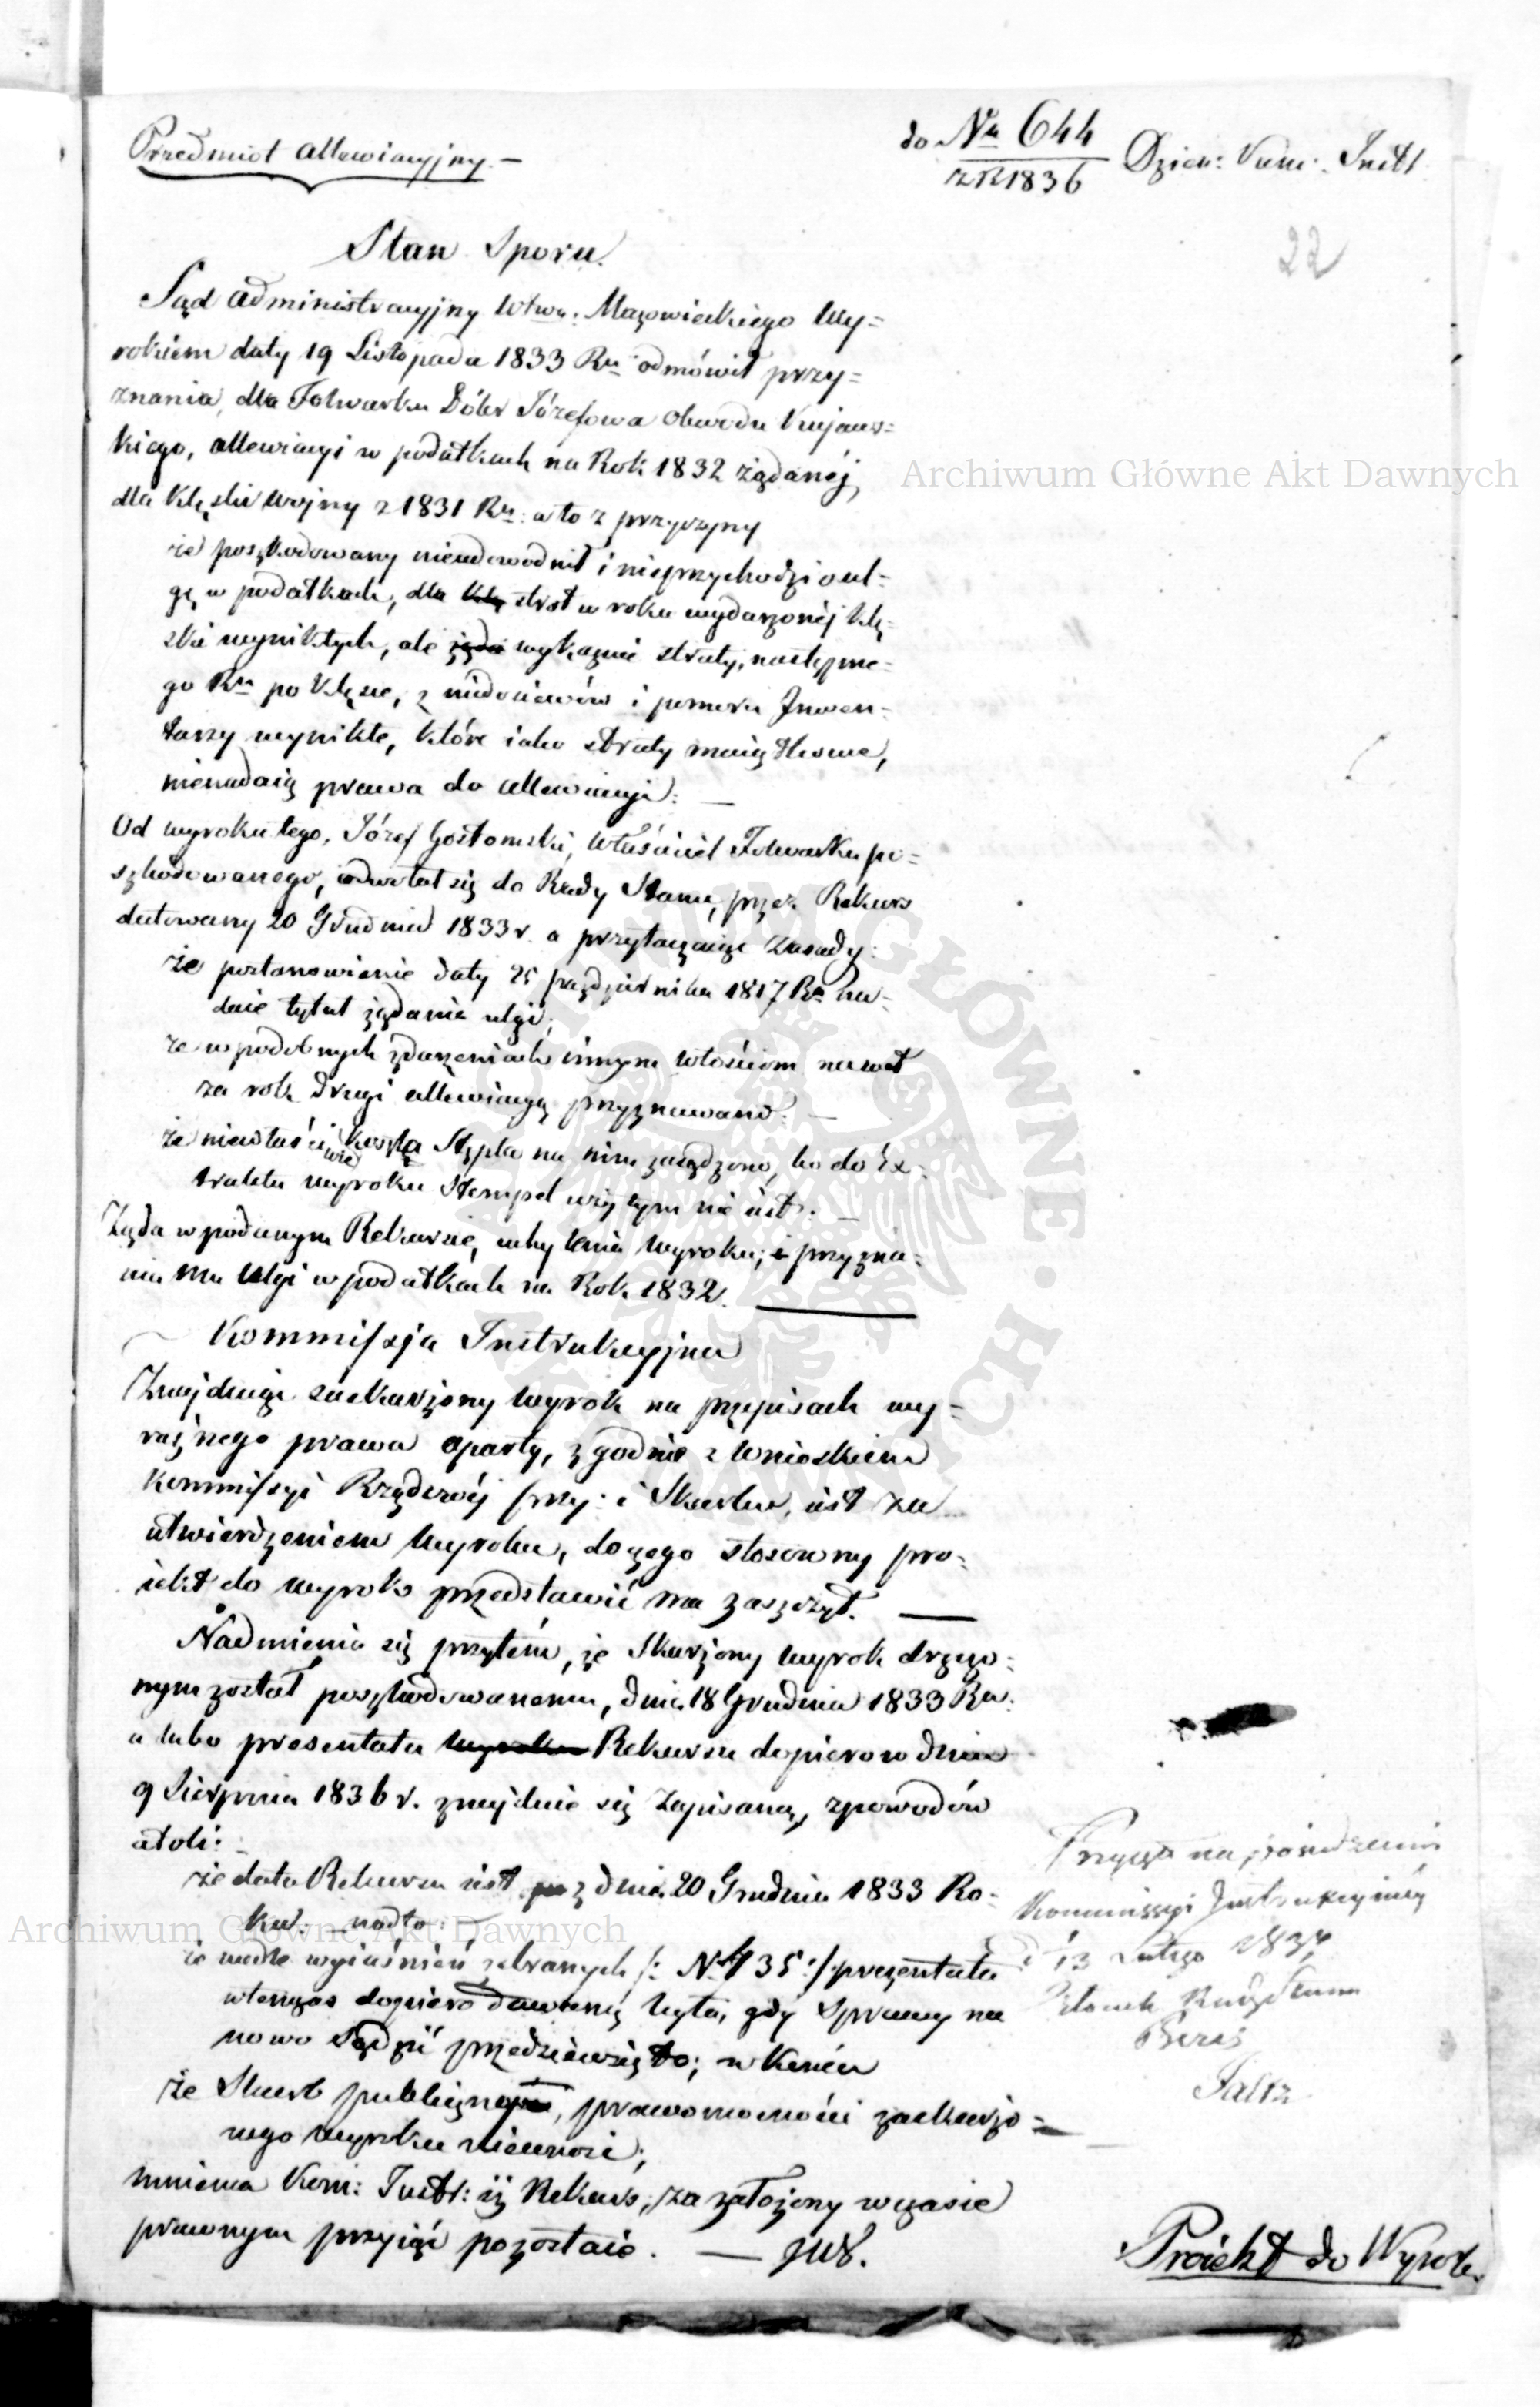 Przedmiot allewiacyjny. —
do Nru 644
z R 1836
Dzien: Kom: Instr
22
Stan Sporu.
Sąd administracyjny Wtwa: Mazowieckiego Wy=
rokiem daty 19 Listopada 1833 Ru odmówił przy=
znania, dla Folwarku Dóbr Józefowa Obwodu Kujaws=
kiego, allewiacyi w podatkach na Rok 1832 żądanéj,
dla klęski wojny z 1831 Ru: a to z przyczyny
że poszkodowany nieudowodnił i nieprzychodzi o ul=
gę w podatkach, dla strat w roku wydarzonéj klę=
ski wynikłych, ale wykazuie straty, następne=
go Ru po klęsce, z niedosiewów i pomoru Inwen=
tarzy wynikłe, które iako straty maiątkowe,
nienadaią prawa do allewiacyi: —
Od wyroku tego, Józef Gostomski, Właściciel Folwarku po=
szkodowanego, odwołał się do Rady Stanu, przez Rekurs
datowany 20 Grudnia 1833 r. a przytaczaiąc zasady:
że postanowienie daty 25 października 1817 Ru na=
daie tytuł żądania ulgi;
że w podobnych zdarzeniach innym włościom nawet
za rok drugi allewiacyą przyznawano: —
że niewłaściwie koszta Stępla na nim zasądzono, bo do Ex=
traktu wyroku Stempel użytym nie iest: —
Żąda w podanym Rekursie, uchylenia Wyroku, i przyzna=
nia mu Ulgi w podatkach na Rok 1832.
Kommissja Instrukcyjna
Znajduiąc zaskarżony Wyrok na przepisach wy=
raźnego prawa oparty, zgodnie z Wnioskiem
Kommissyi Rządowéj Przy: i Skarbu, iest za
utwierdzeniem Wyroku, do czego stosowny pro=
iekt do wyroku przedstawić ma zaszczyt. —
Nadmienia się przytém, że Skarżony Wyrok dręczo=
nym został poszkodowanemu, dnia 18 Grudnia 1833 Ru:
a lubo prezentata Rekursu dopiero w dniu
9 Sierpnia 1836 r. znajduie się zapisaną, z powodów
atoli:
że data Rekursu iest z dnia 20 Grudnia 1833 Ro=
ku: nadto: —
że wedle wyiaśnień zebranych /: N. 735:/ prezentata
wtenczas dopiero dawaną była, gdy Sprawy na
nowo Sądzić przedsiewzięto; w końcu
że Skarb publiczny, prawomocności zaskarżo=
nego Wyroku nieunosi;
mniema Kom: Instr: iż Rekurs, za założony w czasie
prawnym przyiąć pozostaie. —
Przyięto na posiedzeniu
Kommissyi Instrukcyinéj
d. 13 Lutego 1837
Członek Rady Stanu
Projekt do Wyrok
Archiwum Główne Akt Dawnych
Archiwum Główne Akt Dawnych